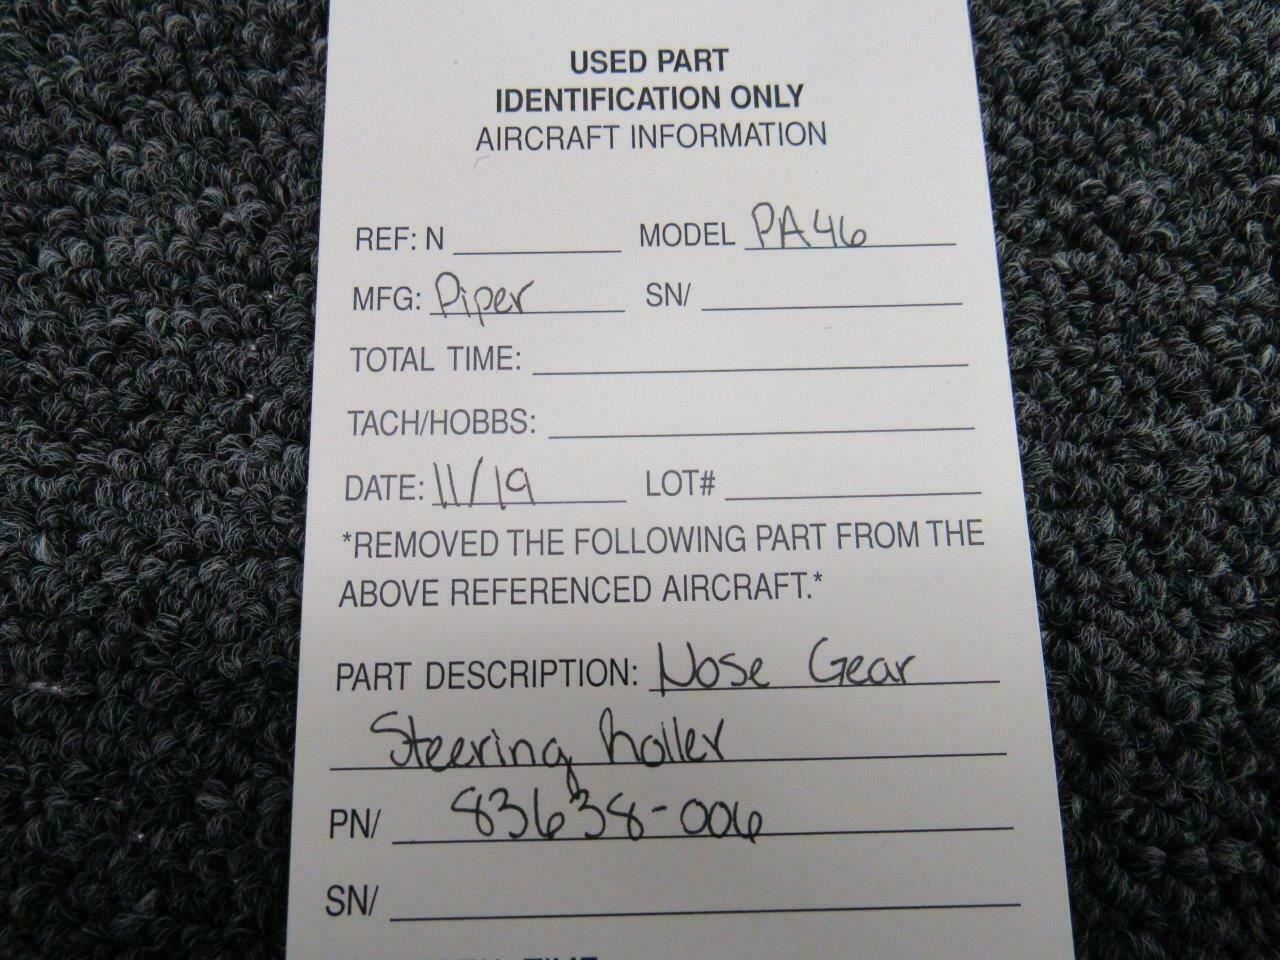 USED PART
IDENTIFICATION ONLY
AIRCRAFT INFORMATION
REF: N MODEL PA46
MFG: Piper SN/
TOTAL TIME:
TACH/HOBBS:
DATE: 11/19 LOT#
*REMOVED THE FOLLOWING PART FROM THE
ABOVE REFERENCED AIRCRAFT.*
PART DESCRIPTION: Nose Gear
Steering Roller
PN/ 83638-006
SN/